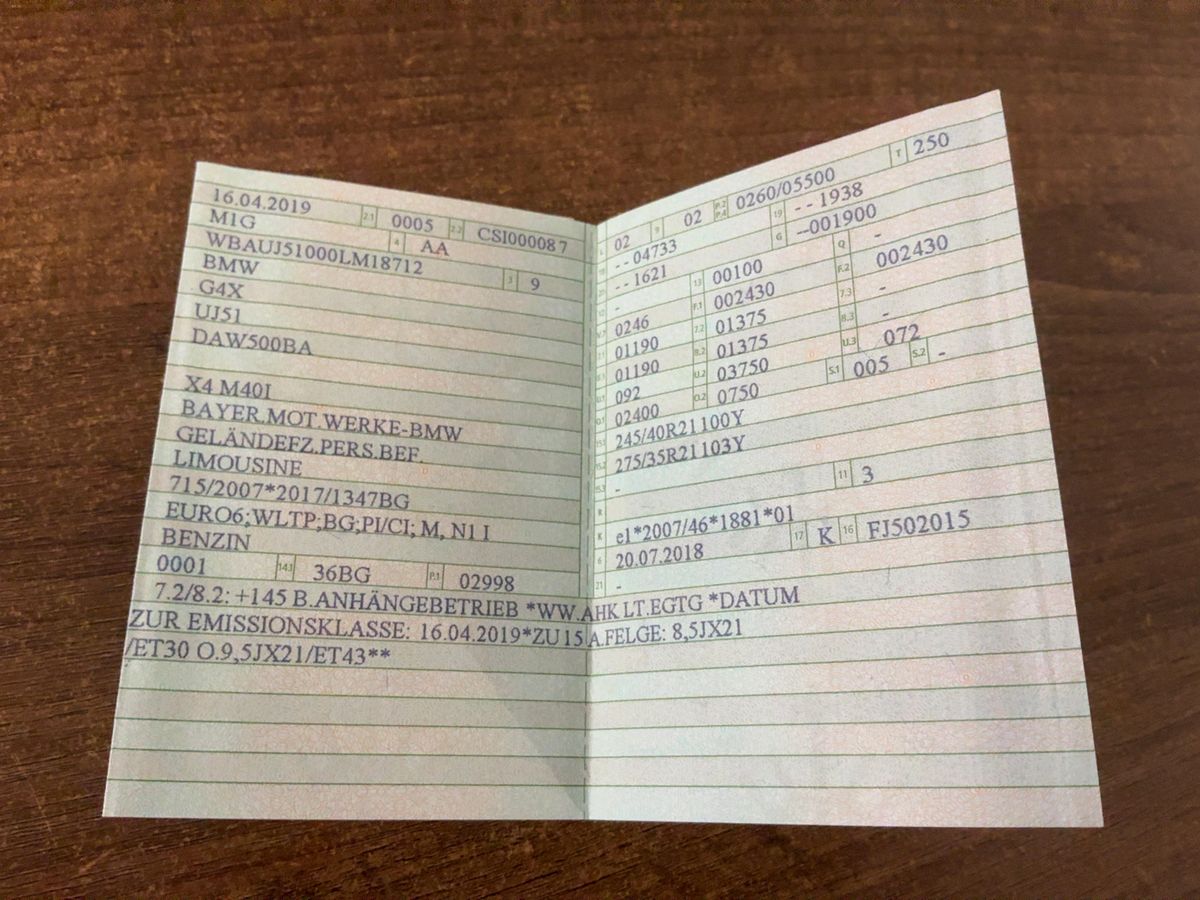 16.04.2019 2.1 0005 2.2 CSI000087
M1G 4 AA
WBAUJ51000LM18712 3 9
BMW
G4X
UJ51
DAW500BA
X4 M40I
BAYER.MOT.WERKE-BMW
GELÄNDEFZ.PERS.BEF.
LIMOUSINE
715/2007*2017/1347BG
EURO6;WLTP;BG;PI/CI; M, N1 I
BENZIN
0001 14.1 36BG P.1 02998
02 9 02 P.2 P.4 0260/05500 T 250
--04733 19 --1938
--1621 G --001900
- 13 00100 Q -
0246 F.1 002430 F.2 002430
01190 7.2 01375 7.3 -
01190 8.2 01375 8.3 -
U.1 092 U.2 03750 U.3 072
O.1 02400 O.2 0750 S.1 005 S.2 -
15.1 245/40R21 100Y
15.2 275/35R21 103Y
15.3 -
R 11 3
K e1*2007/46*1881*01
6 20.07.2018 17 K 16 FJ502015
21 -
7.2/8.2: +145 B.ANHÄNGEBETRIEB *WW.AHK LT.EGTG *DATUM
ZUR EMISSIONSKLASSE: 16.04.2019*ZU15 A.FELGE: 8,5JX21
/ET30 O.9,5JX21/ET43**